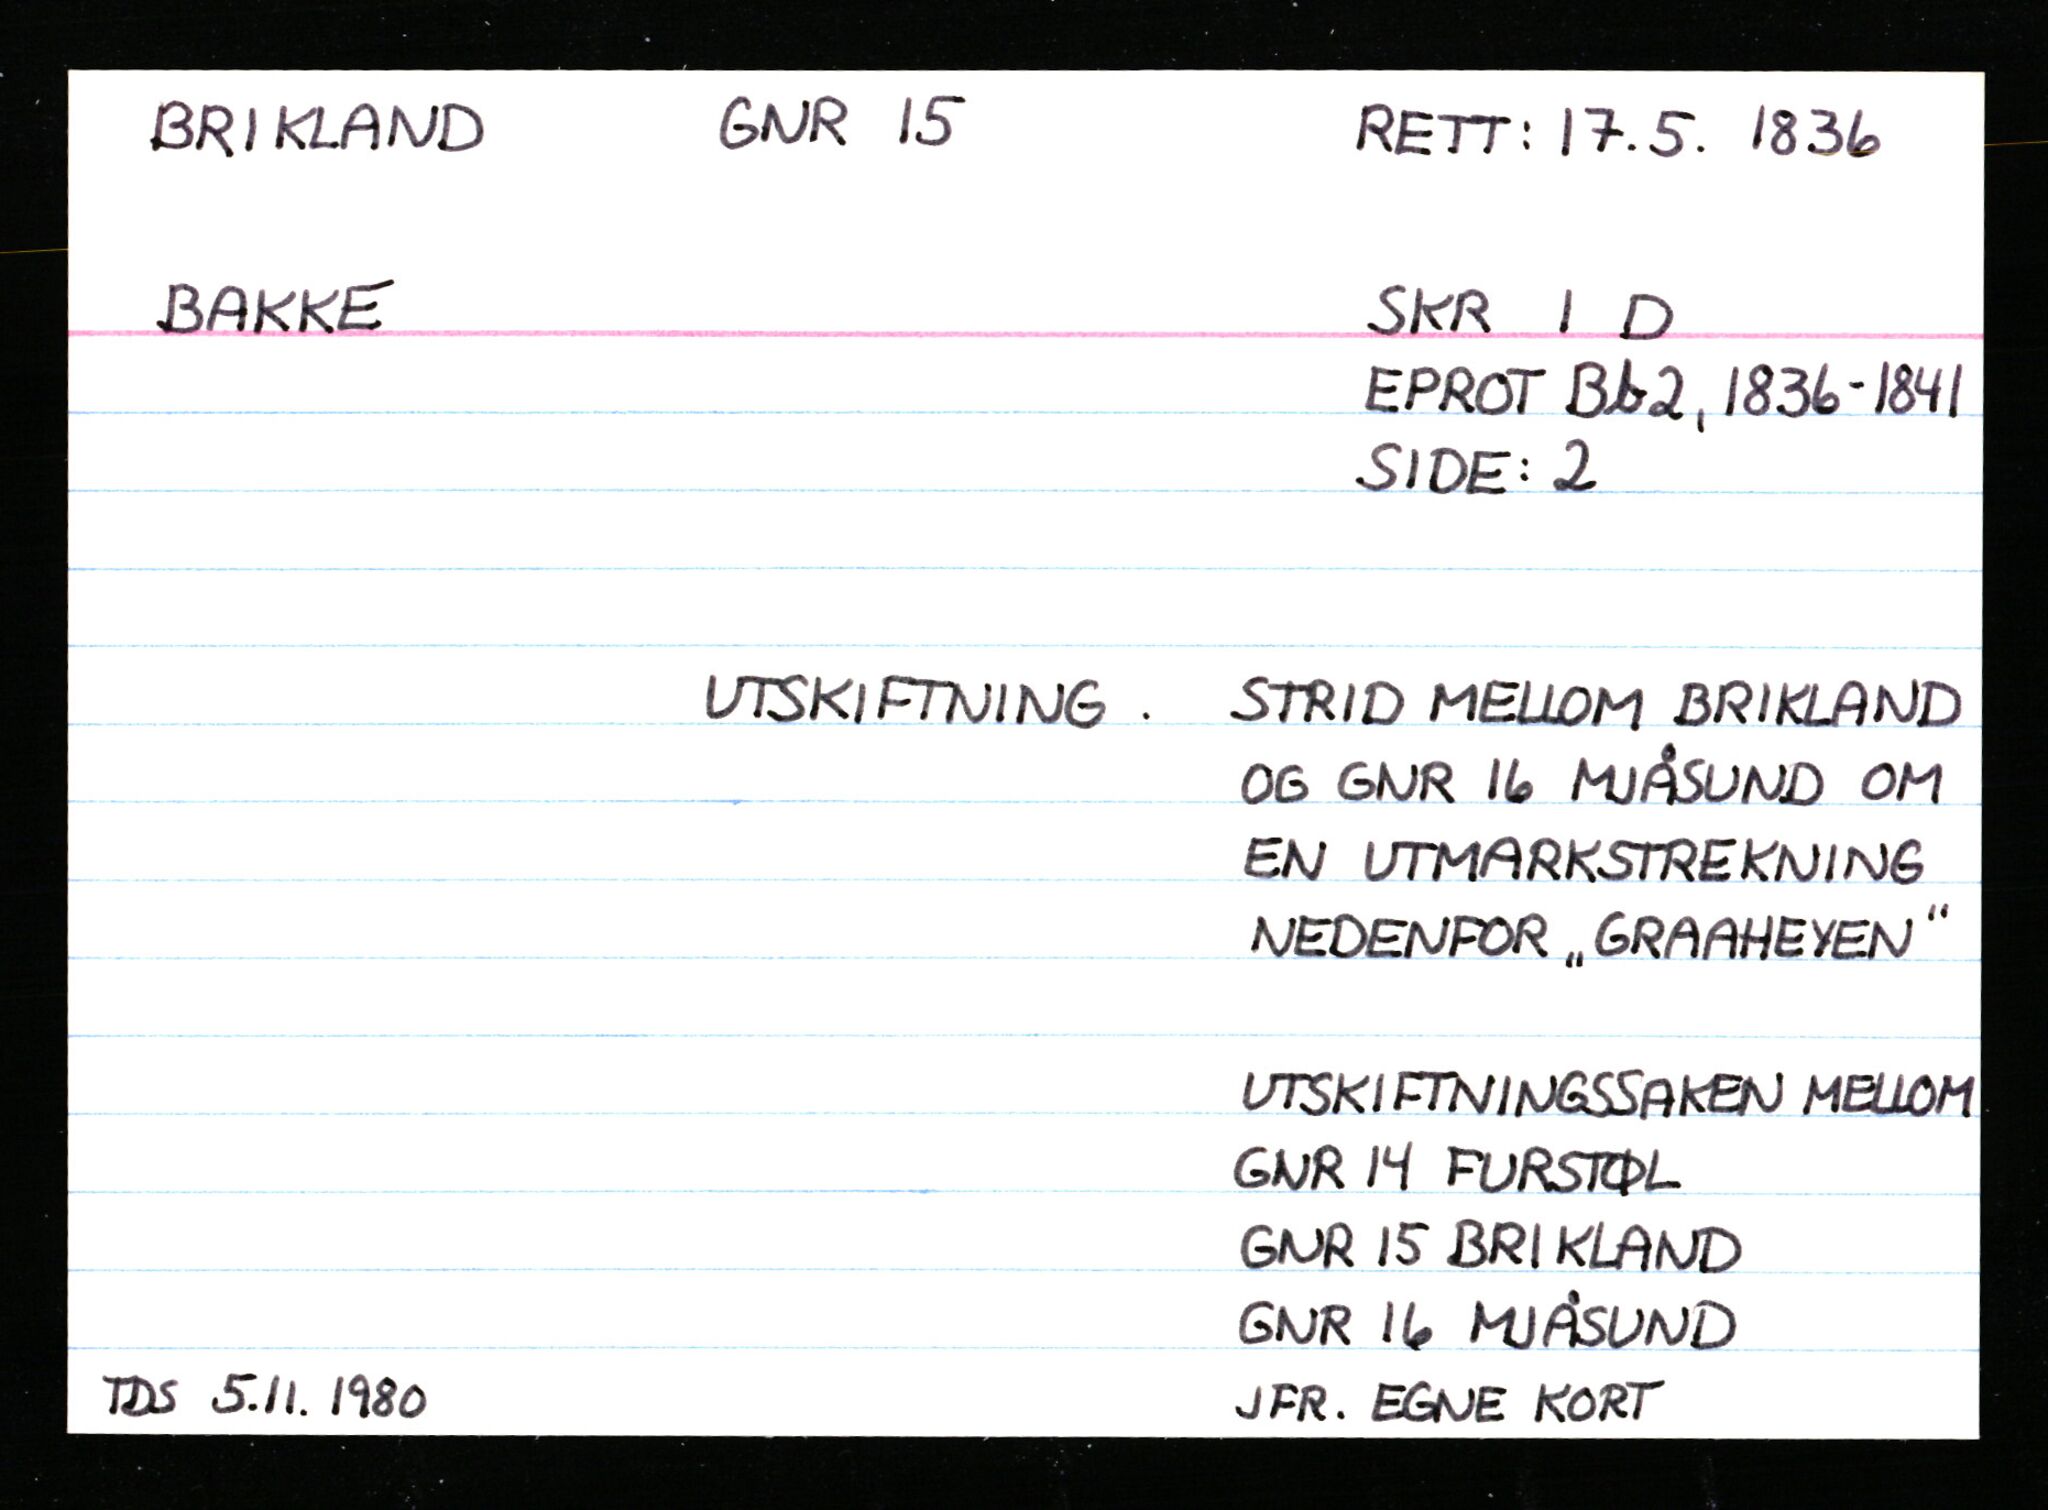 BRIKLAND GNR 15 RETT: 17.5. 1836
BAKKE SKR 1 D
EPROT Bb2, 1836-1841
SIDE: 2
UTSKIFTNING. STRID MELLOM BRIKLAND
OG GNR 16 MJÅSUND OM
EN UTMARKSTREKNING
NEDENFOR „GRAAHEYEN“
UTSKIFTNINGSSAKEN MELLOM
GNR 14 FURSTØL
GNR 15 BRIKLAND
GNR 16 MJÅSUND
TDS 5.11. 1980 JFR. EGNE KORT